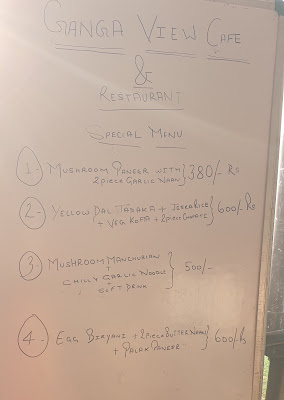 GANGA VIEW CAFE
&
RESTAURANT
SPECIAL MENU
1- MUSHROOM PANEER WITH } 380/- Rs
2PIECE GARLIC NAAN
2- YELLOW DAL TADAKA + JEERA RICE } 600/- Rs
+ VEG KOFTA + 2PIECE
3 MUSHROOM MANCHURIAN
+
CHILLY GARLIC NOODLE } 500/-
+ SOFT DRINK
4- EGG BIRYANI + 2PIECE BUTTER NAAN } 600/-
+ PALAK PANEER